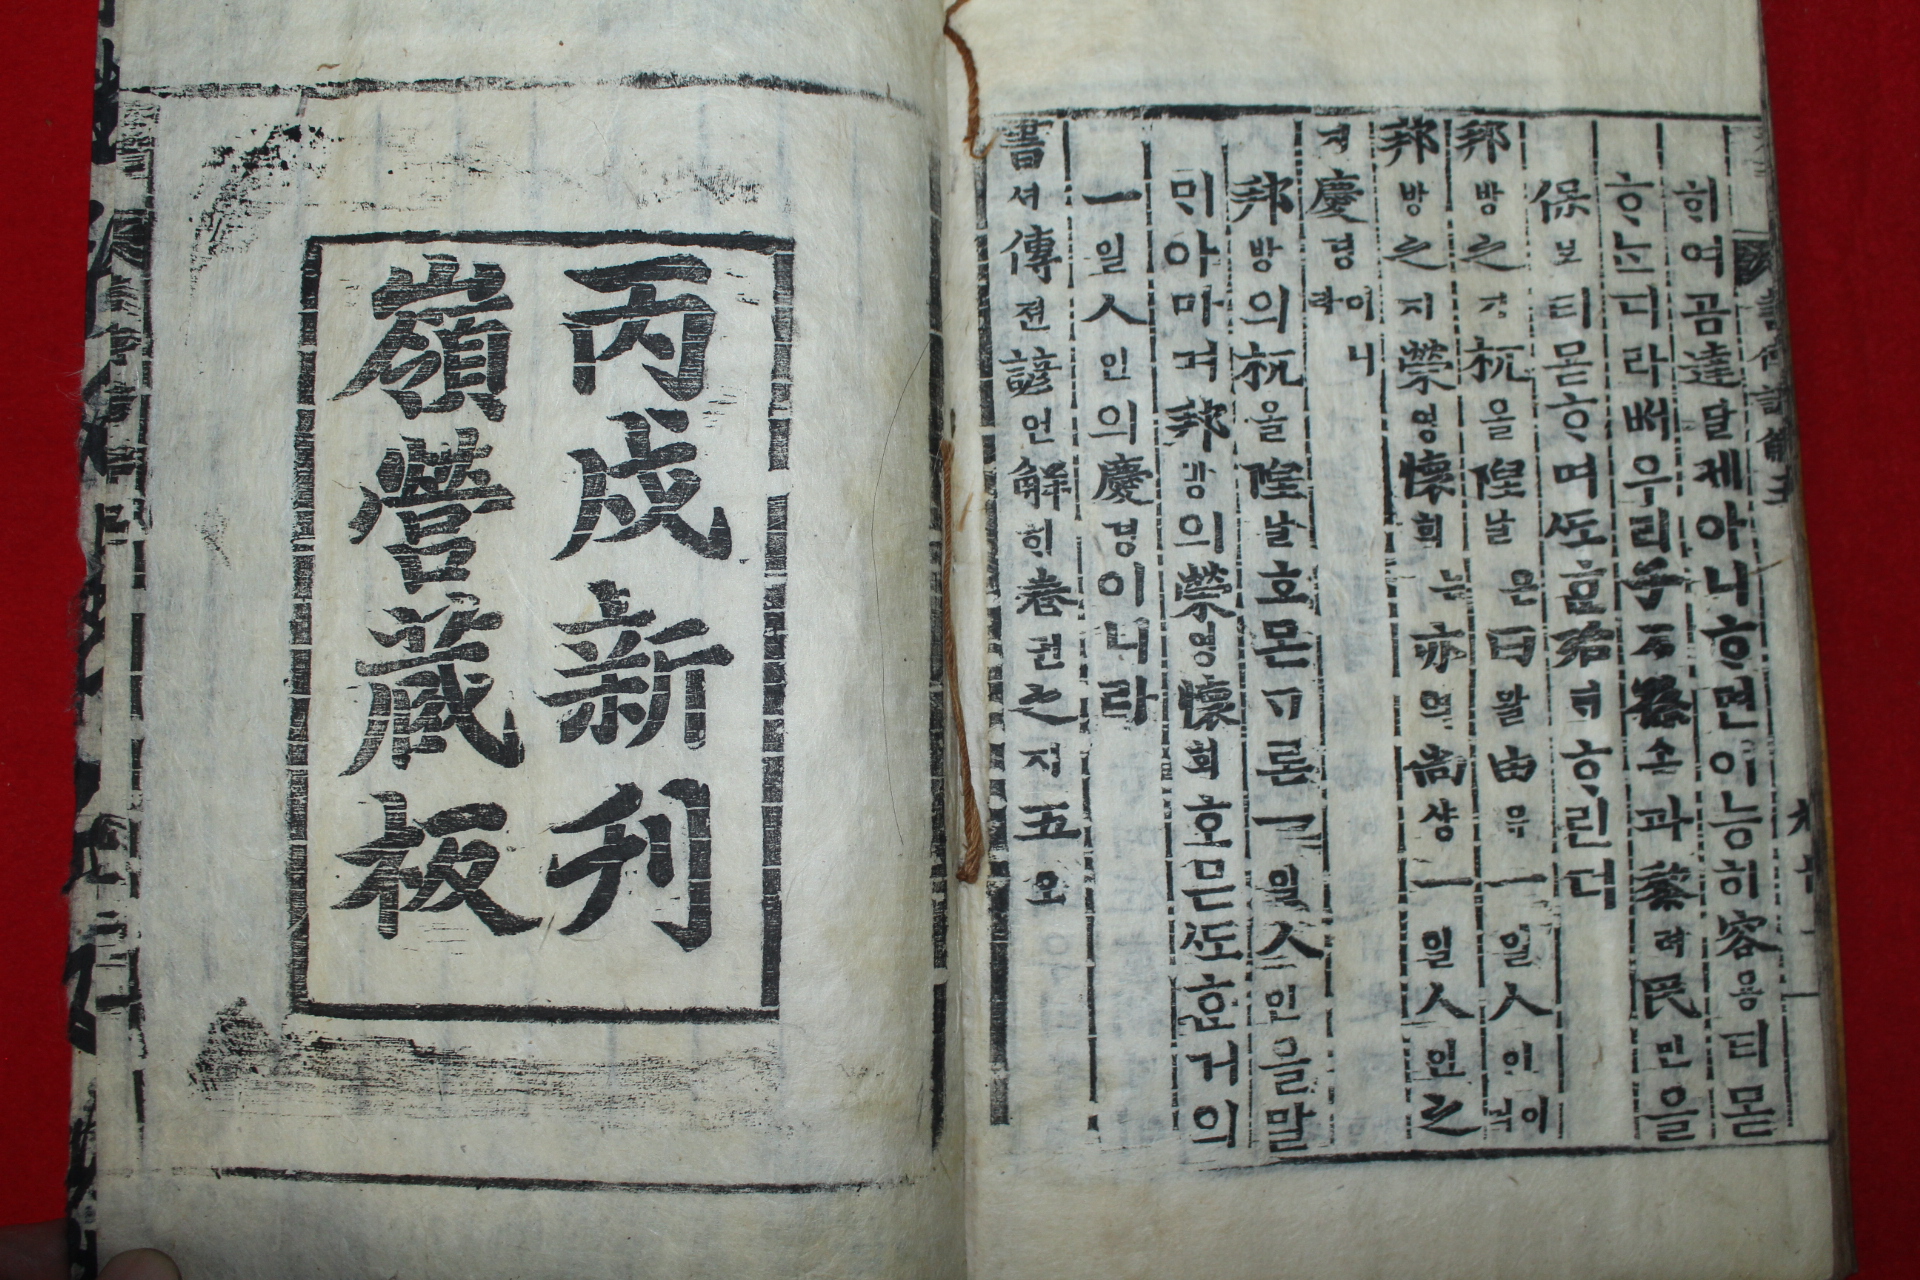 書傳諺解五
히여곰達달졔아니ᄒᆞ면이능히容용티몯
ᄒᆞᄂᆞᆫ디라ᄡᅥ우리子ᄌᆞ孫손과黎려民민을
保보티몯ᄒᆞ며ᄯᅩᄒᆞᆫ殆ᄐᆡᄒᆞ린뎌
邦방之지杌을隉날은曰왈由유一일人인이
邦방之지榮영懷회ᄂᆞᆫ亦역尙샹一일人인之
지慶경이니라
邦방의杌을隉날호몬ᄀᆞ론一일人인을말
민아마며邦방의榮영懷회호믄ᄯᅩᄒᆞᆫ거의
一일人인의慶경이니라
書셔傳젼諺언解ᄒᆡ卷권之지五오
丙戌新刊
嶺營藏板